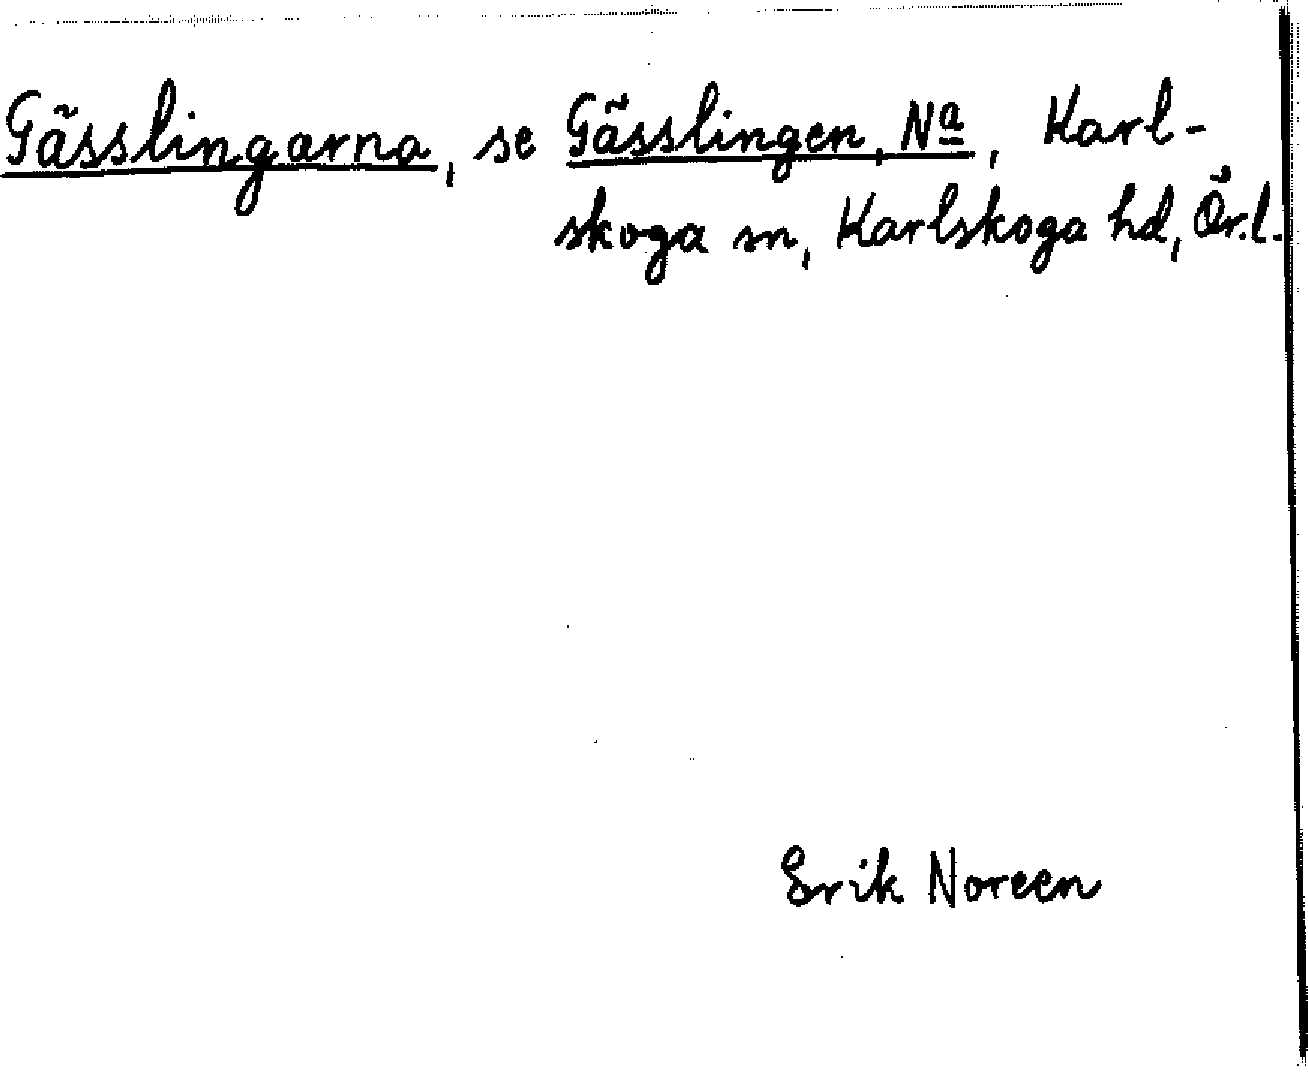 Gässlingarna, se Gässlingen, Nª, Karl-
skoga sn, Karlskoga hd, Ör.l.
Erik Noreen